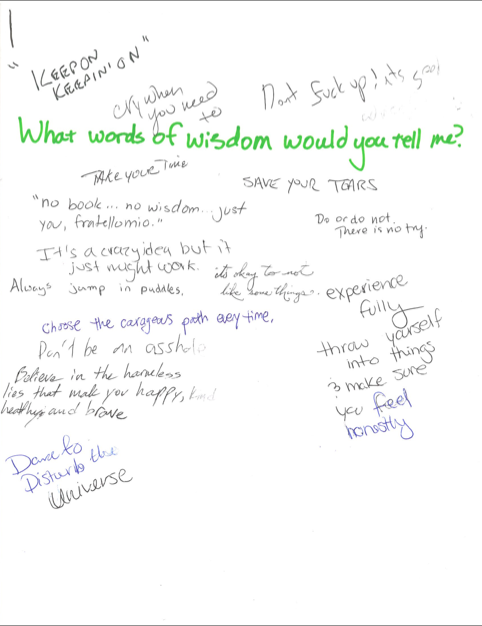 "KEEP ON
KEEPIN' ON"
cry when
you need
to
Dont fuck up! its
What words of wisdom would you tell me?
TAKE YOUR TIME
SAVE YOUR TEARS
"no book... no wisdom... just
you, fratellomio."
Do or do not.
There is no try.
It's a crazy idea, but it
just might work.
its okay to not
like some things.
Always jump in puddles.
experience
fully
throw yourself
into things
& make sure
you feel
honestly
Choose the corageous path every time.
Don't be an asshole
Believe in the harmless
lies that make you happy, kind
healthy and brave
Dare to
Disturb the
Universe